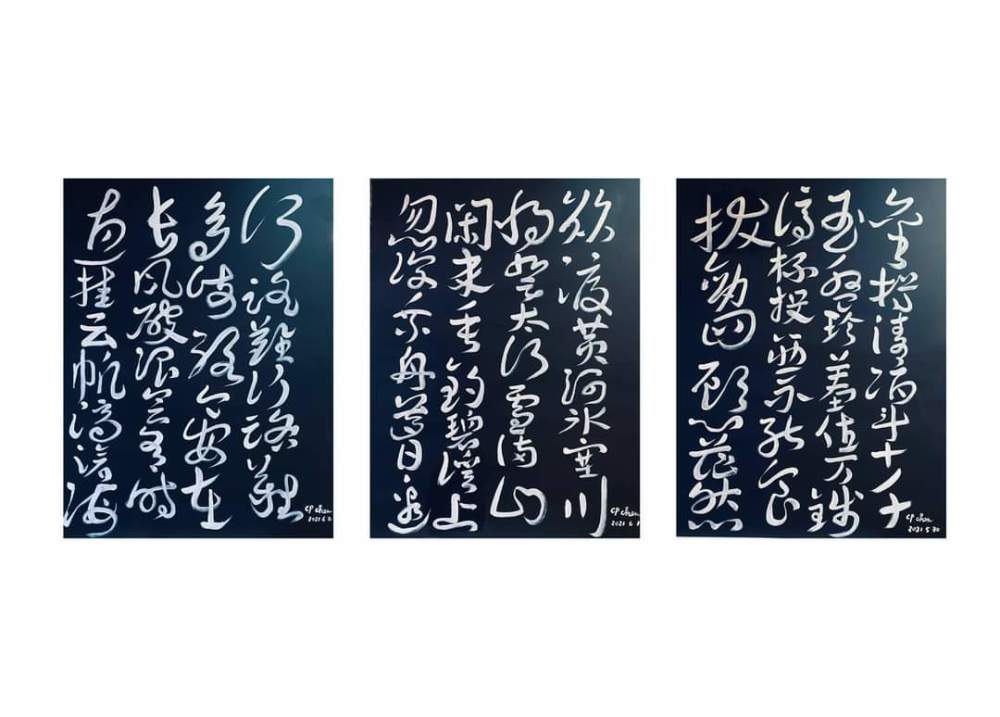 金樽清酒斗十千
玉盘珍羞值万钱
停杯投箸不能食
拔剑四顾心茫然
CP chen
2021 5 30
欲渡黄河冰塞川
将登太行雪满山
闲来垂钓碧溪上
忽复乘舟梦日边
CP chen
2021 6 1
行路难行路难
多歧路今安在
长风破浪会有时
直挂云帆济沧海
CP chen
2021 6